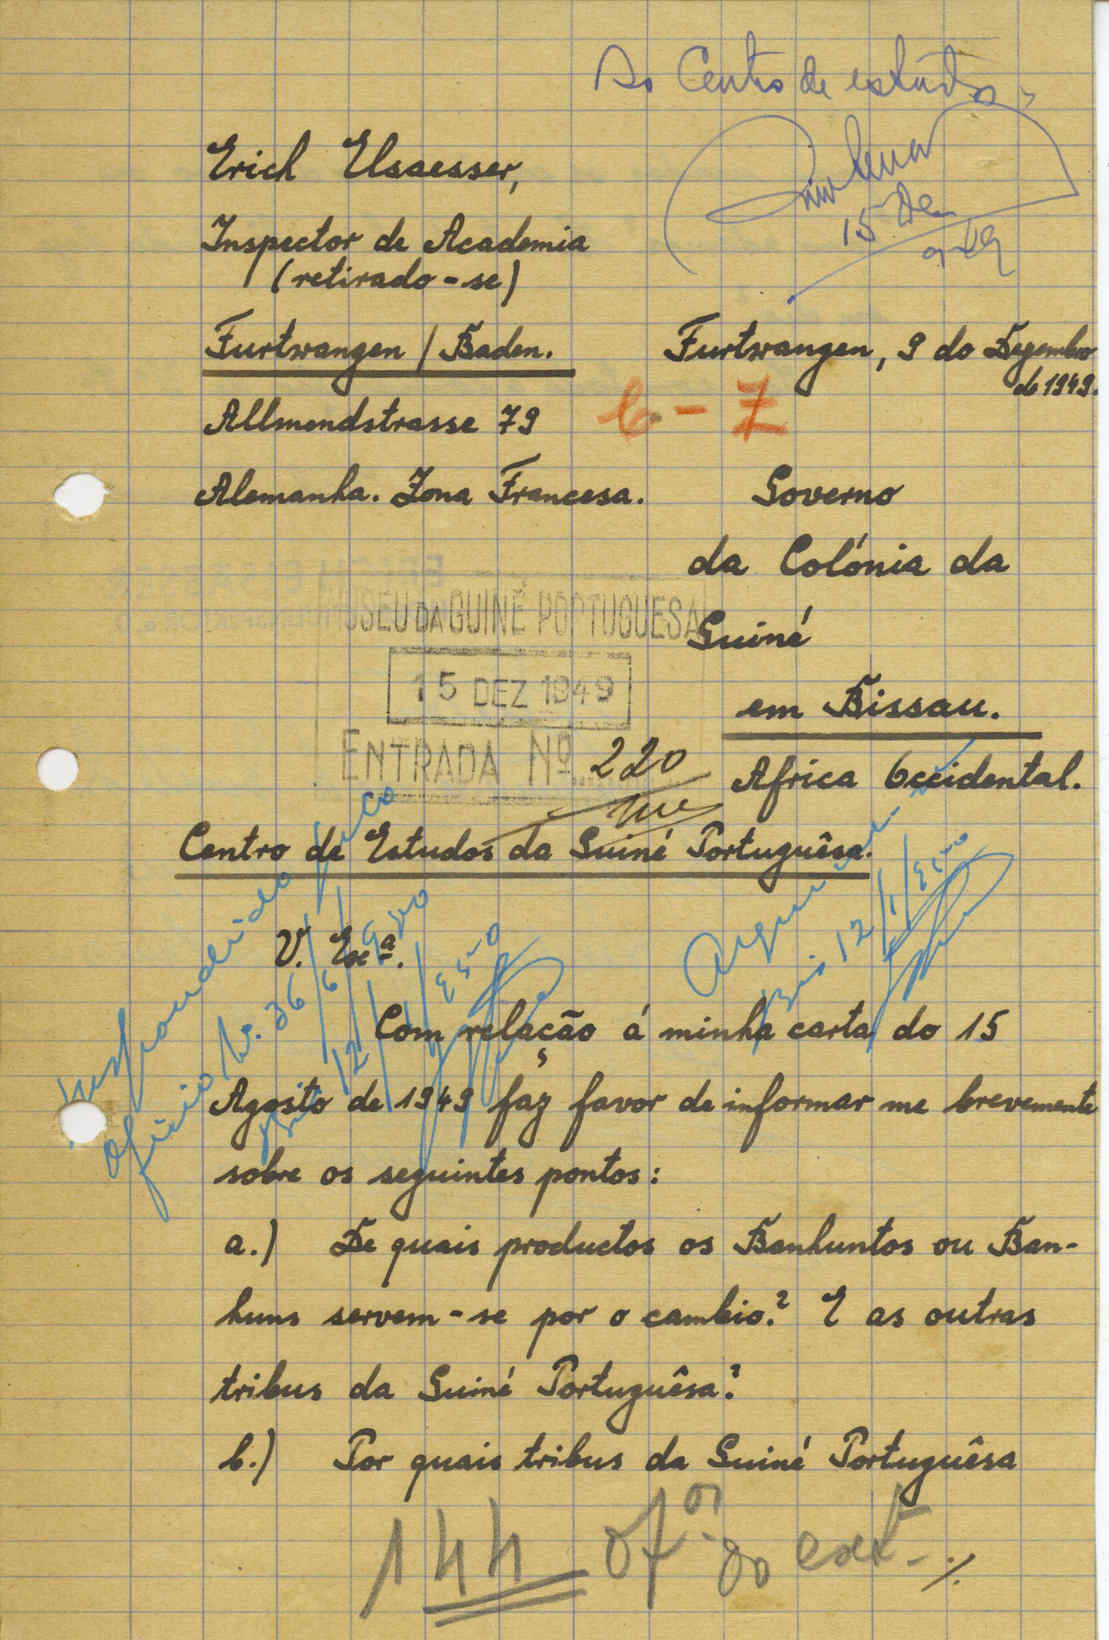 Ao Centro de estudos
15 De
949
Erich Elsaesser,
Inspector de Academia
(retirado-se)
Furtwangen / Baden.
Furtwangen, 9 do Dezembro
de 1949.
Allmendstrasse 79
C - 7
Alemanha. Zona Francesa.
Governo
da Colónia da
MUSEU DA GUINÉ PORTUGUESA
Guiné
15 DEZ 1949
em Bissau.
ENTRADA Nº 220
Africa Occidental.
Centro de Estudos da Guiné Portuguêsa.
Respondido
ofício Nº. 36/
12/1/950
Arquivar
12/1/950
V. Exª.
Com relação á minha carta do 15
Agosto de 1949 faz favor de informar me brevemente
sobre os seguintes pontos:
a.) De quais productos os Banhuntos ou Ban-
huns servem-se por o cambio? E as outras
tribus da Guiné Portuguêsa?
b.) Por quais tribus da Guiné Portuguêsa
144 of ext.